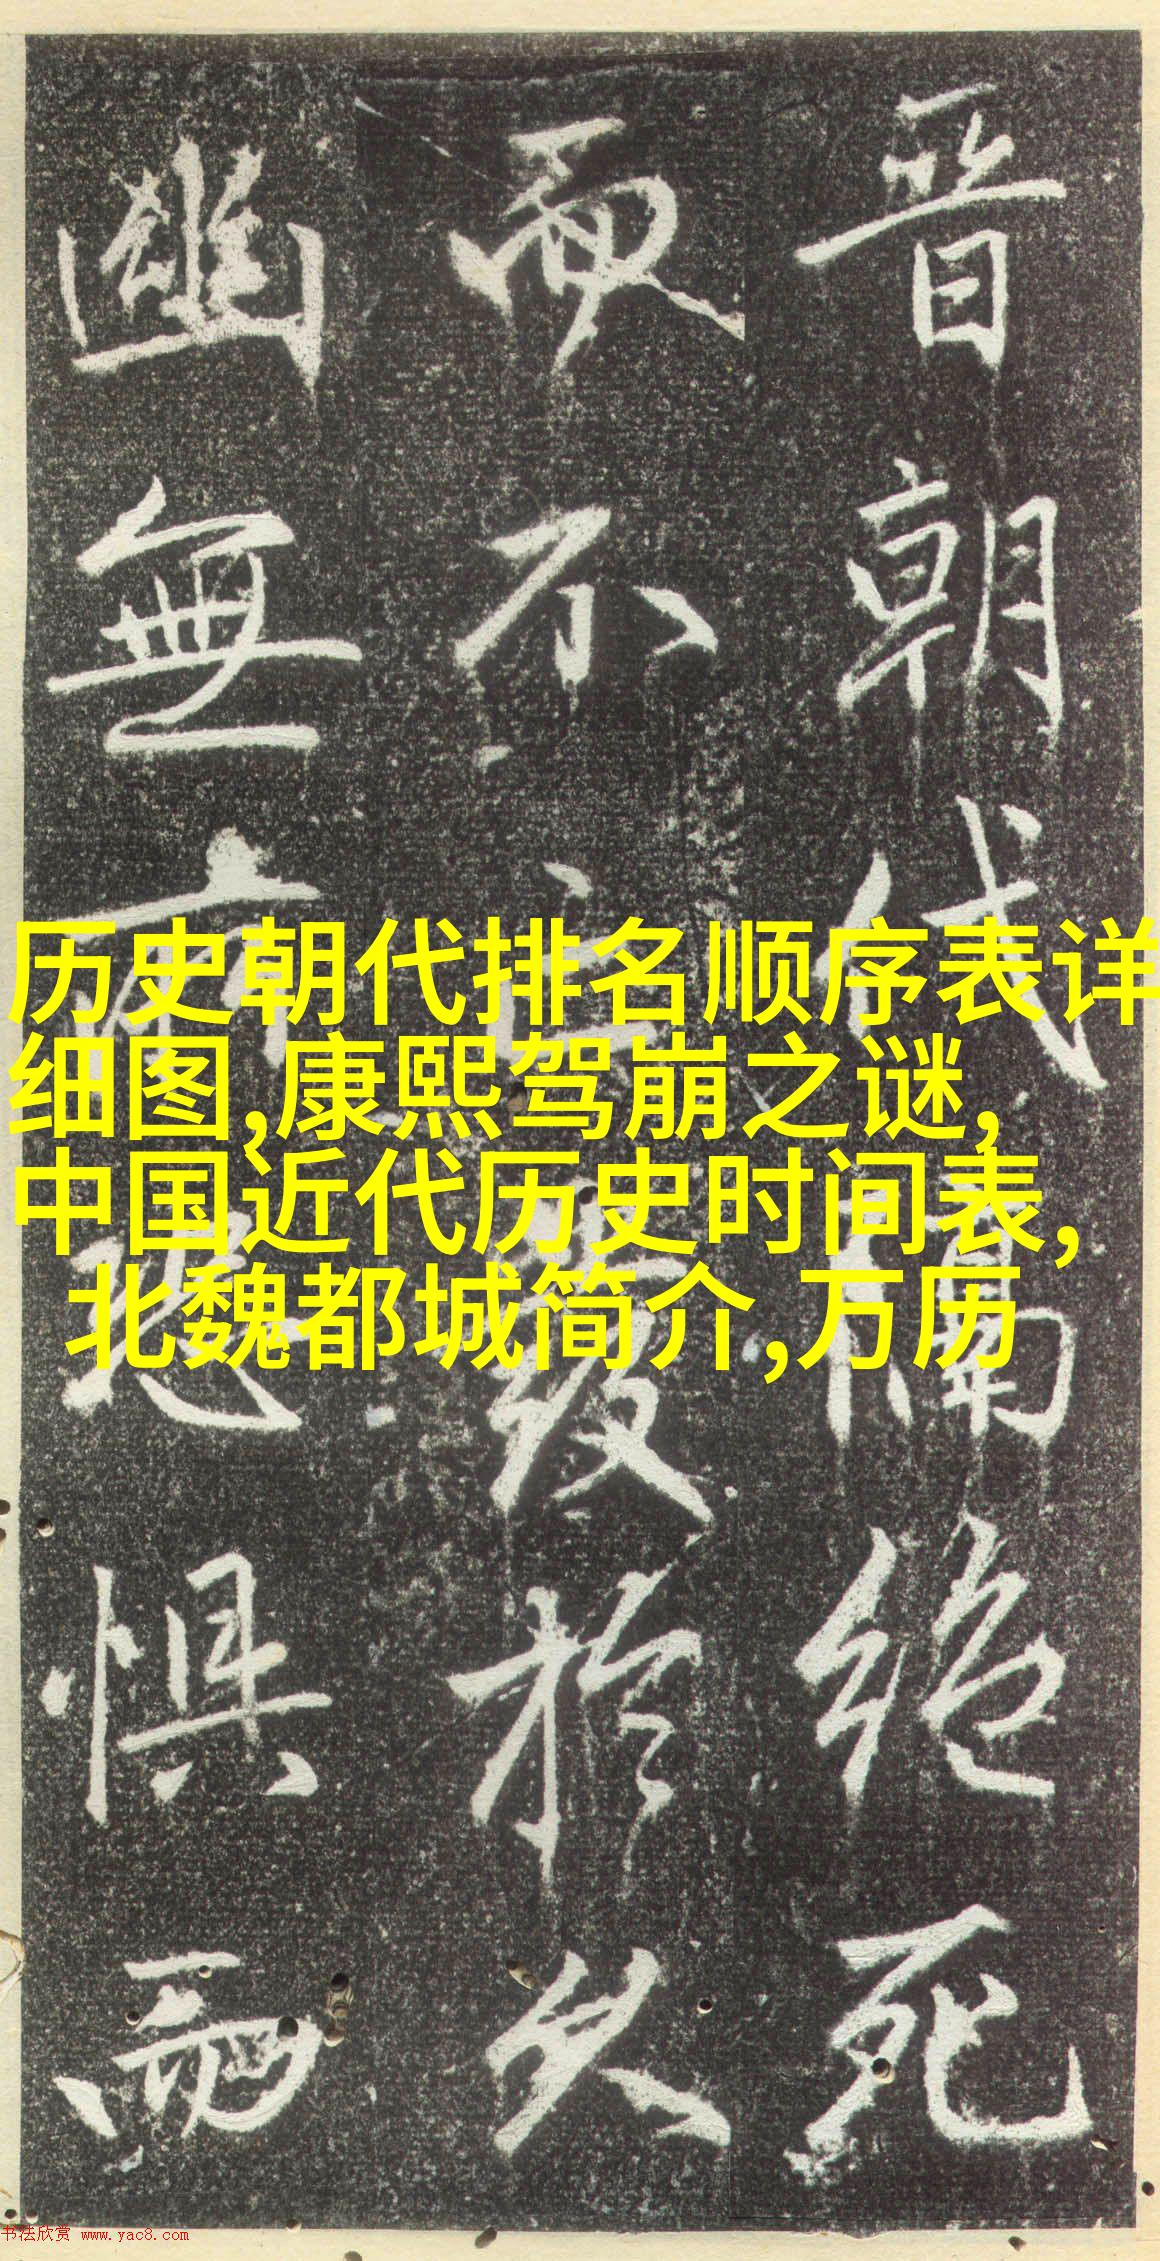 历史朝代排名顺序表详
细图,康熙驾崩之谜,
中国近代历史时间表,
北魏都城简介,万历
晉朝代隔絶死
不發於久
幽無恐懼
书法欣赏 www.yac8.com